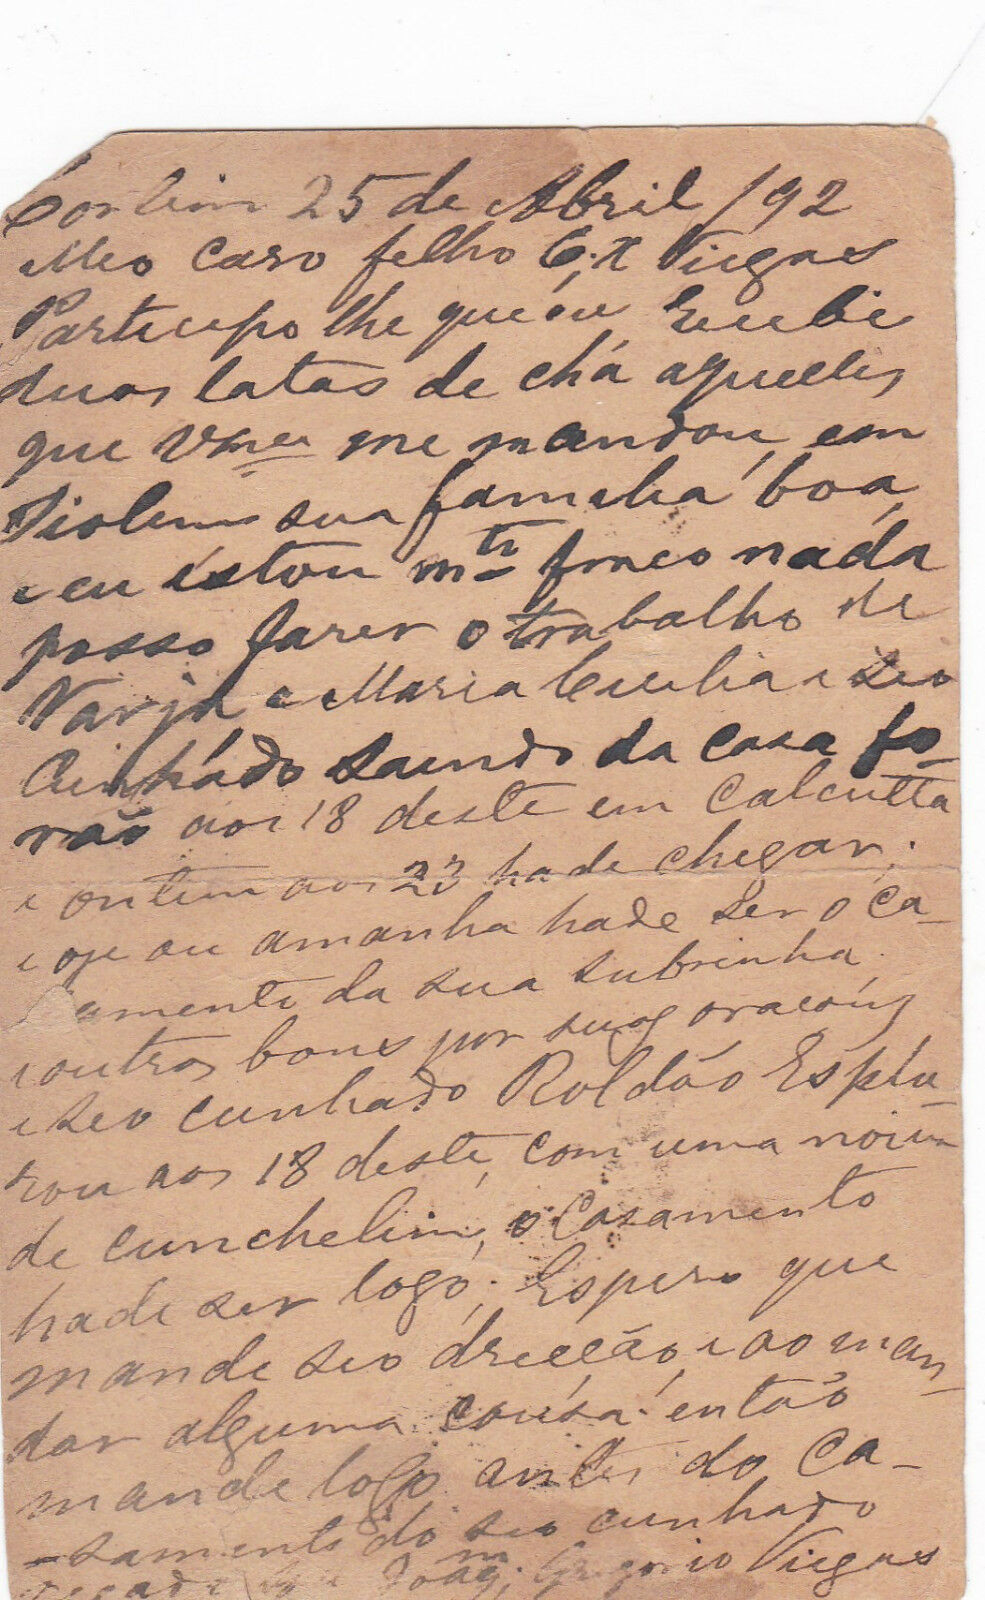 Cortim 25 de Abril /92
Meo caro felho C. X Viegas
Participo lhe que eu recebi
duas latas de chá aquelles
que Vmce me mandou, em
sua familia boa,
e eu estou mto fraco nada
posso fazer o trabalho de
Varjá e Maria Cecilia e seo
Cunhádo saindo da casa fo-
rão aos 18 deste em Calcutta
e ontem aos 23 hade chegar;
e oje ou amanha hade ser o Ca-
samento da sua subrinha,
e outros bons por suas oracoês
e seo cunhado Roldão Espiu-
rou aos 18 deste, com uma noiva
de cunchelim, o Casamento
hade ser logo; Espero que
mande seo drecção, e ao man-
dar alguma cousa então
mande logo antes do Ca-
-samento do seo cunhado
Joam Gregorio Viegas